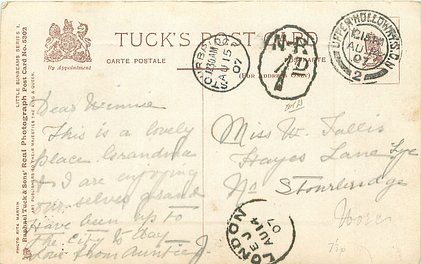 TUCK'S POST CARD
CARTE POSTALE
(For Address Only)
By Appointment
LITTLE SUNBEAMS SERIES I.
Raphael Tuck & Sons' Real Photograph Post Card No. 5302
ART PUBLISHERS TO THEIR MAJESTIES THE KING & QUEEN.
UPPER HOLLOWAY S.O.N.
AU
07
2
AU 15
07
N-R
1D
LONDON
E J
AU 14
07
Dear Winnie
This is a lovely
place Grandma
& I are enjoying
our-selves grand
have been up to
the City to day
Love from Auntie J.
Miss W. Tallis
Hayes Lane Lye
Nr Stourbridge
Worcs